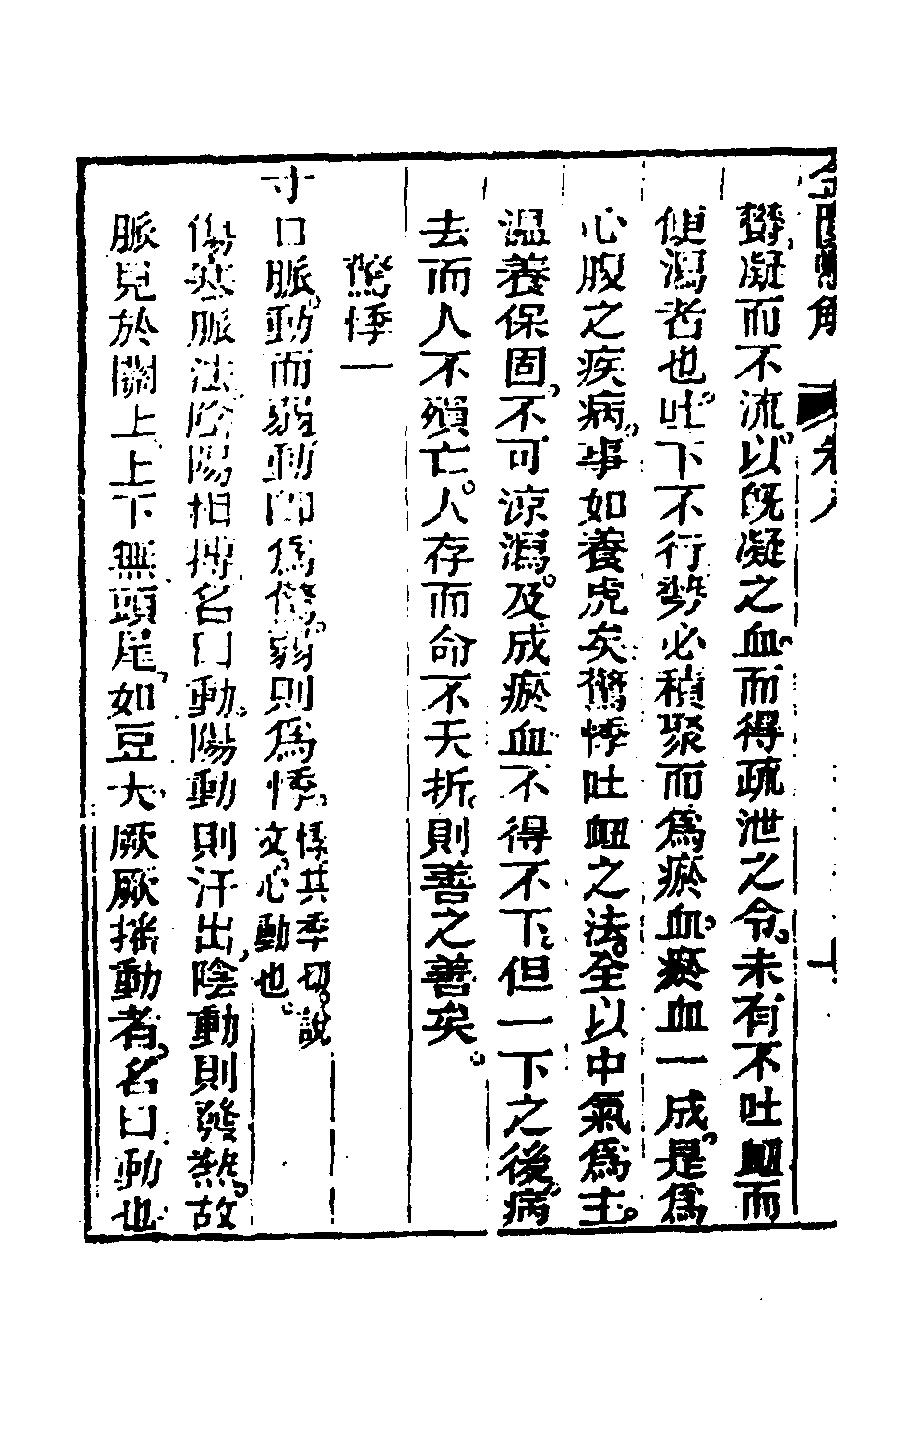 鬱凝而不流以旣凝之血而得疏泄之令未有不吐衄而
便瀉者也吐下不行勢必積聚而爲瘀血瘀血一成是爲
心腹之疾病事如養虎矣驚悸吐衄之法全以中氣爲主
溫養保固不可涼瀉及成瘀血不得不下但一下之後病
去而人不殞亡人存而命不夭折則善之善矣
驚悸一
寸口脈動而弱動卽爲驚弱則爲悸悸其季切說文心動也
傷寒脈法陰陽相搏名曰動陽動則汗出陰動則發熱故
脈見於關上上下無頭尾如豆大厥厥搖動者名曰動也